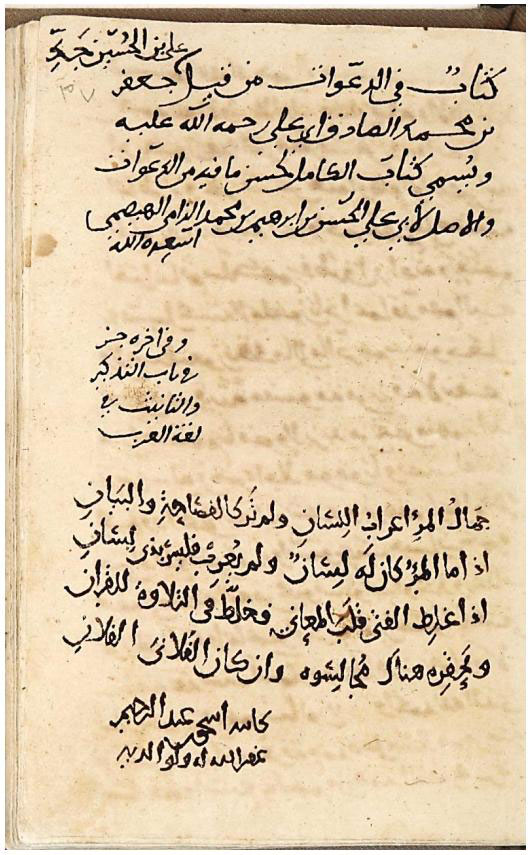 علي بن الحسين جد
كتاب في الدعوات من قبل جعفر
بن محمد الصادق ابي علي رحمه الله عليه
ويسمى كتاب الكامل لحسن ما فيه من الدعوات
والاصل لابي علي الحسن بن ابرهيم بن محمد الزامي الهيصمي
اسعده الله
وفي اخره جزء
في باب التذكير
والتانيث في
لغة العرب
جمال المرء اعراب اللسان ولم نر كالفصاحة والبيان
اذا ما المرء كان له لسان ولم يعرب فليس بذي لسان
اذا غلط الفتى قلب المعاني وخلط في التلاوة للقران
ويحقره هناك مجالسوه وان كان الفلاني الفلاني
كاتبه اسحق عبد الرحيم
غفر الله له ولوالديه